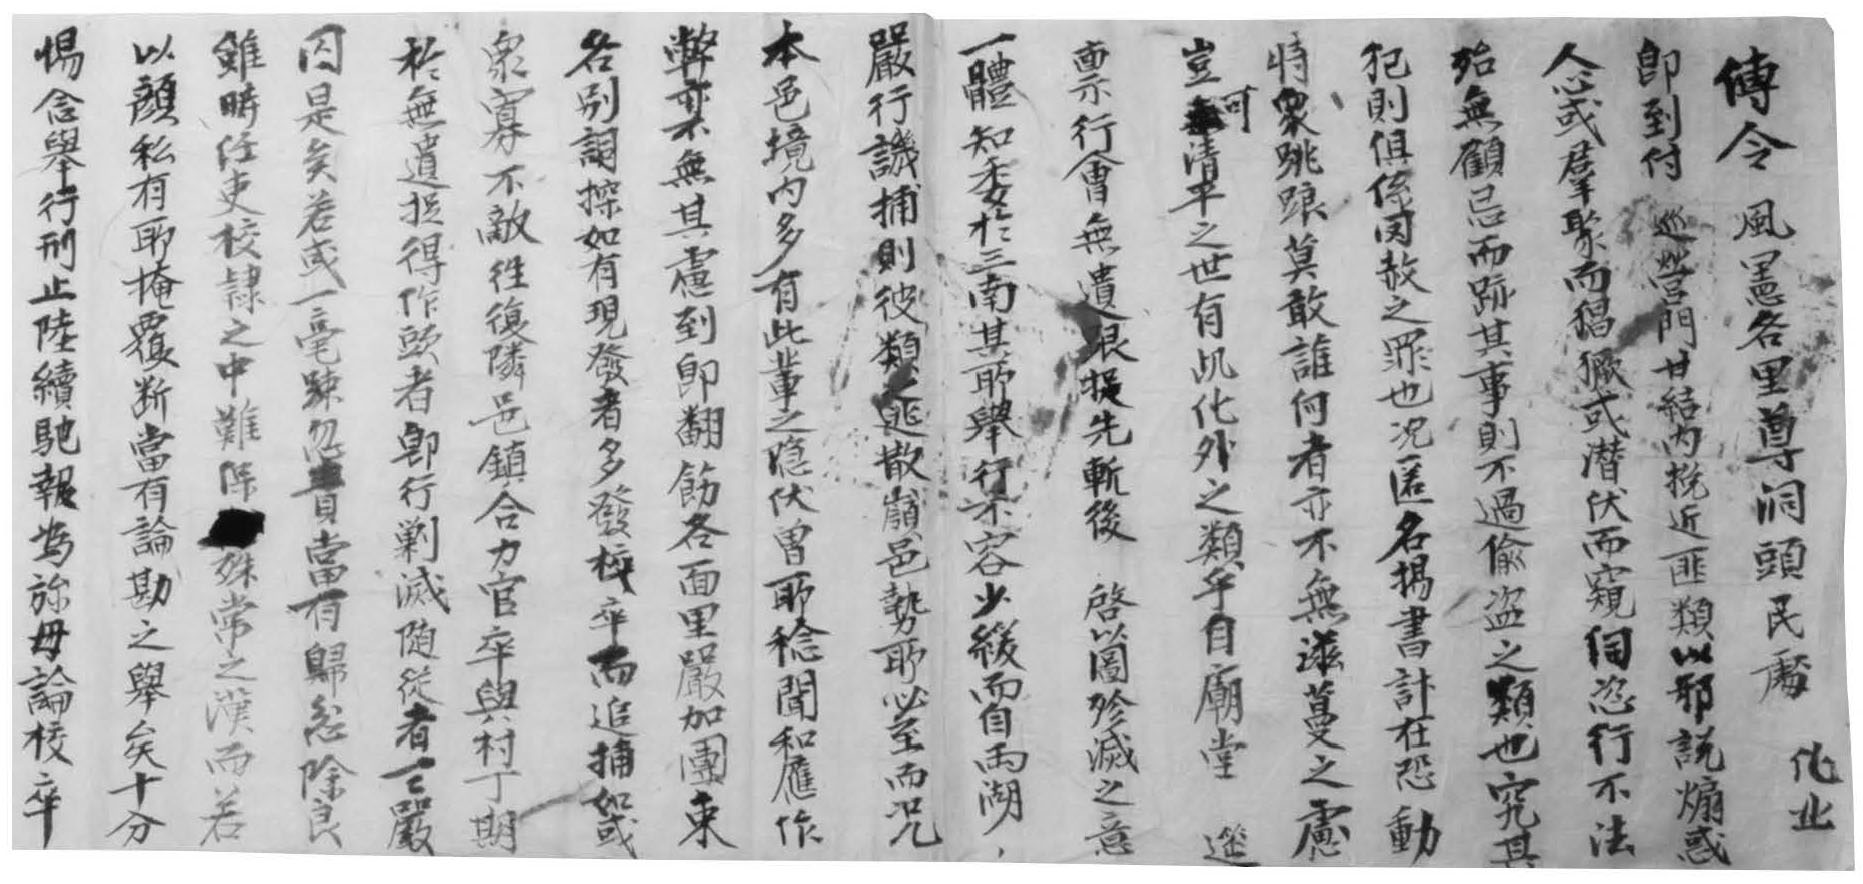 傳令 風憲各里尊洞頭民處 化北
卽到付 巡營門甘結內挽近匪類以邪說煽惑
人心或羣聚而猖獗或潛伏而窺伺恣行不法
殆無顧忌而跡其事則不過偸盜之類也究其
犯則俱係罔赦之罪也况匿名揭書計在恐動
恃衆跳踉莫敢誰何者亦不無滋蔓之慮
豈可淸平之世有此化外之類乎自廟堂 筵
稟行會無遺根捉先斬後 啓以圖殄滅之意
一體知委於三南其所擧行不容少緩而自兩湖
嚴行譏捕則彼類之逃散嶺邑勢所必至而况
本邑境內多有此輩之隱伏曾所稔聞和應作
弊亦不無其慮到卽翻飭各面里嚴加團束
各別詗探如有現發者多發校卒而追捕如或
衆寡不敵往復隣邑鎭合力官卒與村丁期
於無遺捉得作頭者卽行剿滅隨從者一一嚴
囚是矣若或一毫踈忽責當有歸忿除良
雖時任吏校隷之中難保 殊常之漢而若
以顔私有所掩覆斷當有論勘之擧矣十分
惕念擧行形止陸續馳報爲旀毋論校卒